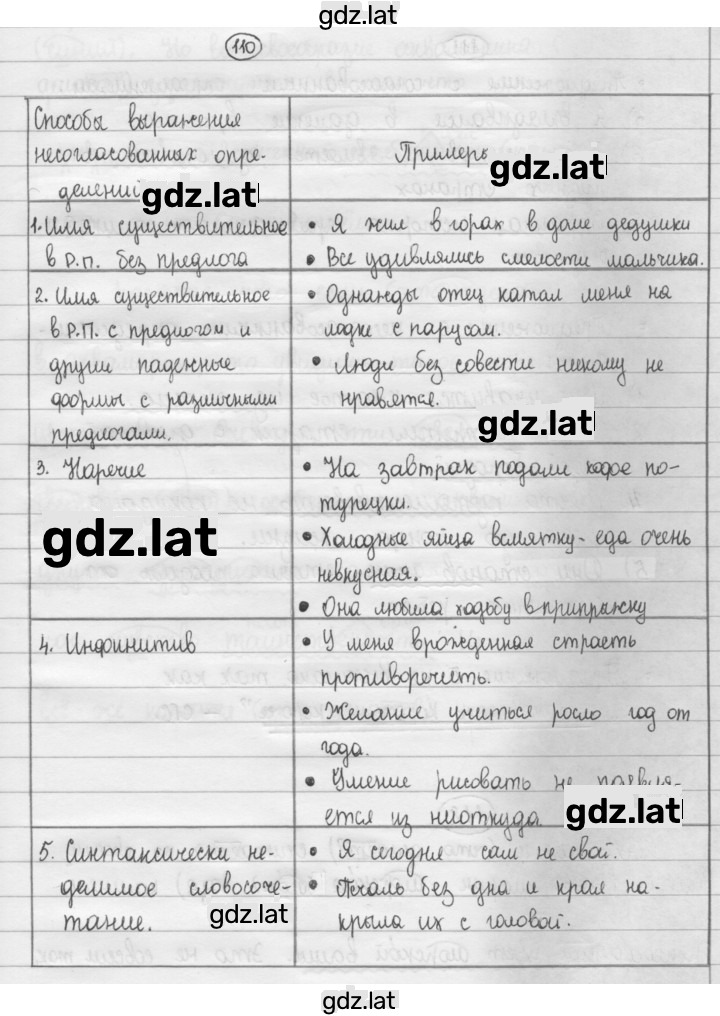 gdz.lat
110
Способы выражения
несогласованных опре-
делений
gdz.lat
Примеры
gdz.lat
1. Имя существительное
в Р.п. без предлога
• Я жил в горах в доме дедушки
• Все удивлялись смелости мальчика.
2. Имя существительное
в Р.П. с предлогом и
другии падежные
формы с различными
предлогами.
• Однажды отец катал меня на
лодке с парусом.
• Люди без совести никому не
нравятся.
gdz.lat
3. Наречие
gdz.lat
• На завтрак подали кофе по-
турецки.
• Холодные яйца всмятку - еда очень
невкусная.
• Она любила ходьбу вприпрыжку
4. Инфинитив
• У меня врожденная страсть
противоречить.
• Желание учиться росло год от
года.
• Умение рисовать не появля-
ется из ниоткуда
gdz.lat
5. Синтаксически не-
делимое словосоче-
тание.
gdz.lat
• Я сегодня сам не свой.
• Печаль без дна и края на-
крыла их с головой.
gdz.lat